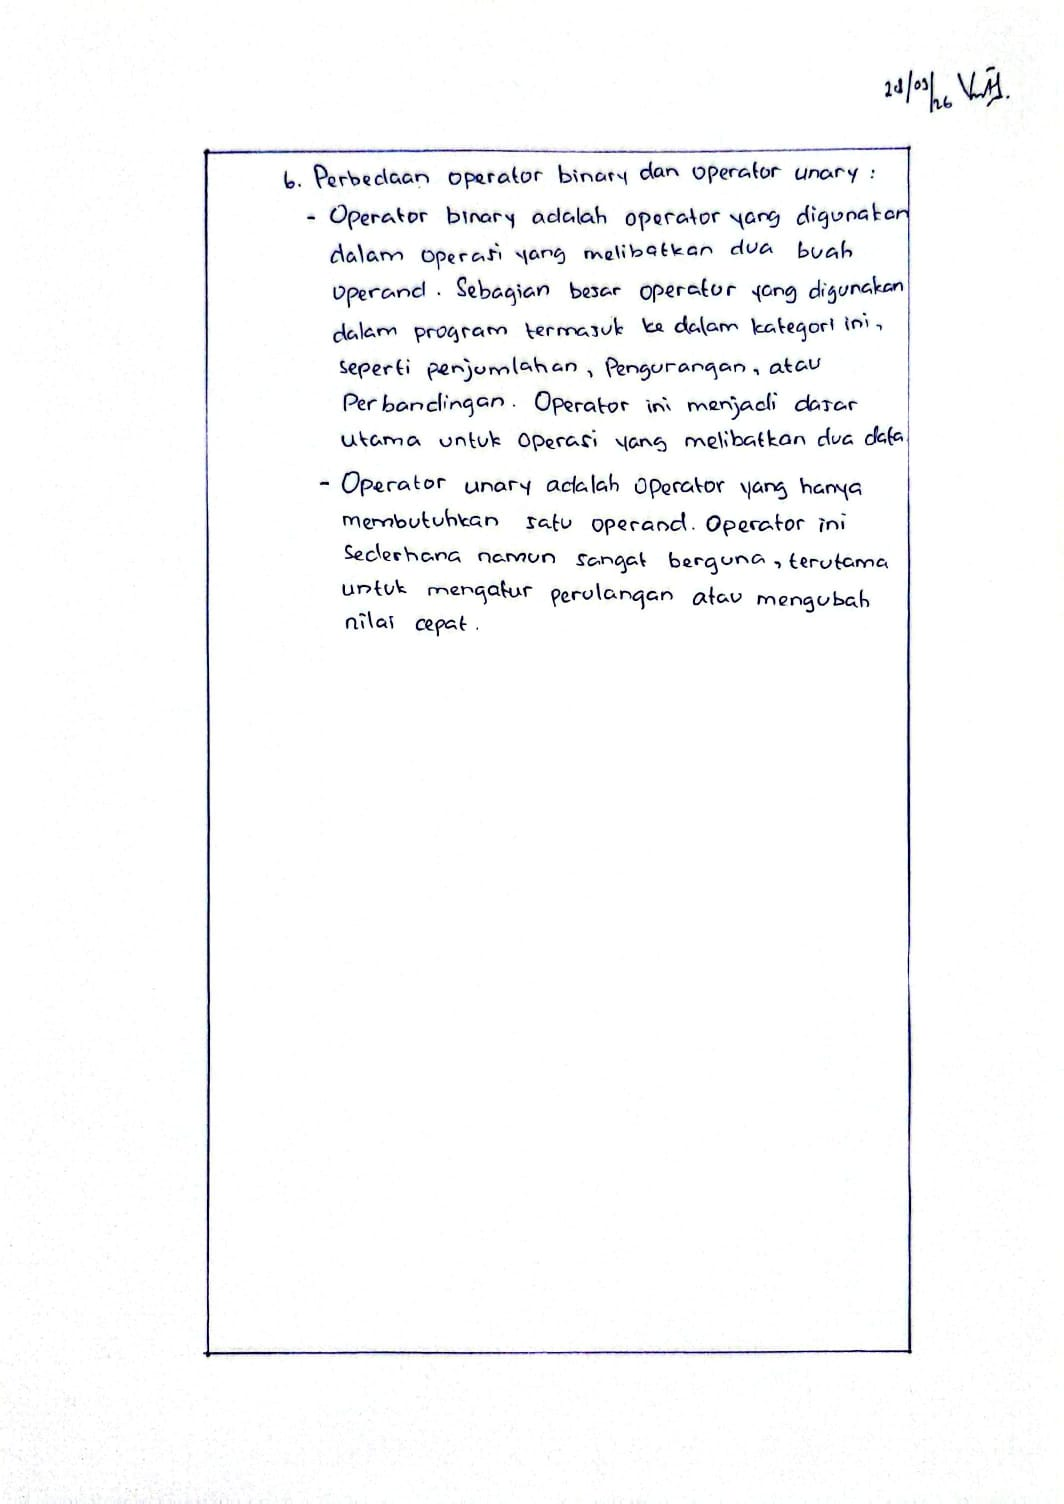 28/03/26
6. Perbedaan operator binary dan operator unary :
- Operator binary adalah operator yang digunakan
dalam operasi yang melibatkan dua buah
operand. Sebagian besar operator yang digunakan
dalam program termasuk ke dalam kategori ini,
seperti penjumlahan, Pengurangan, atau
Perbandingan. Operator ini menjadi dasar
utama untuk operasi yang melibatkan dua data.
- Operator unary adalah operator yang hanya
membutuhkan satu operand. Operator ini
Sederhana namun sangat berguna, terutama
untuk mengatur perulangan atau mengubah
nilai cepat.